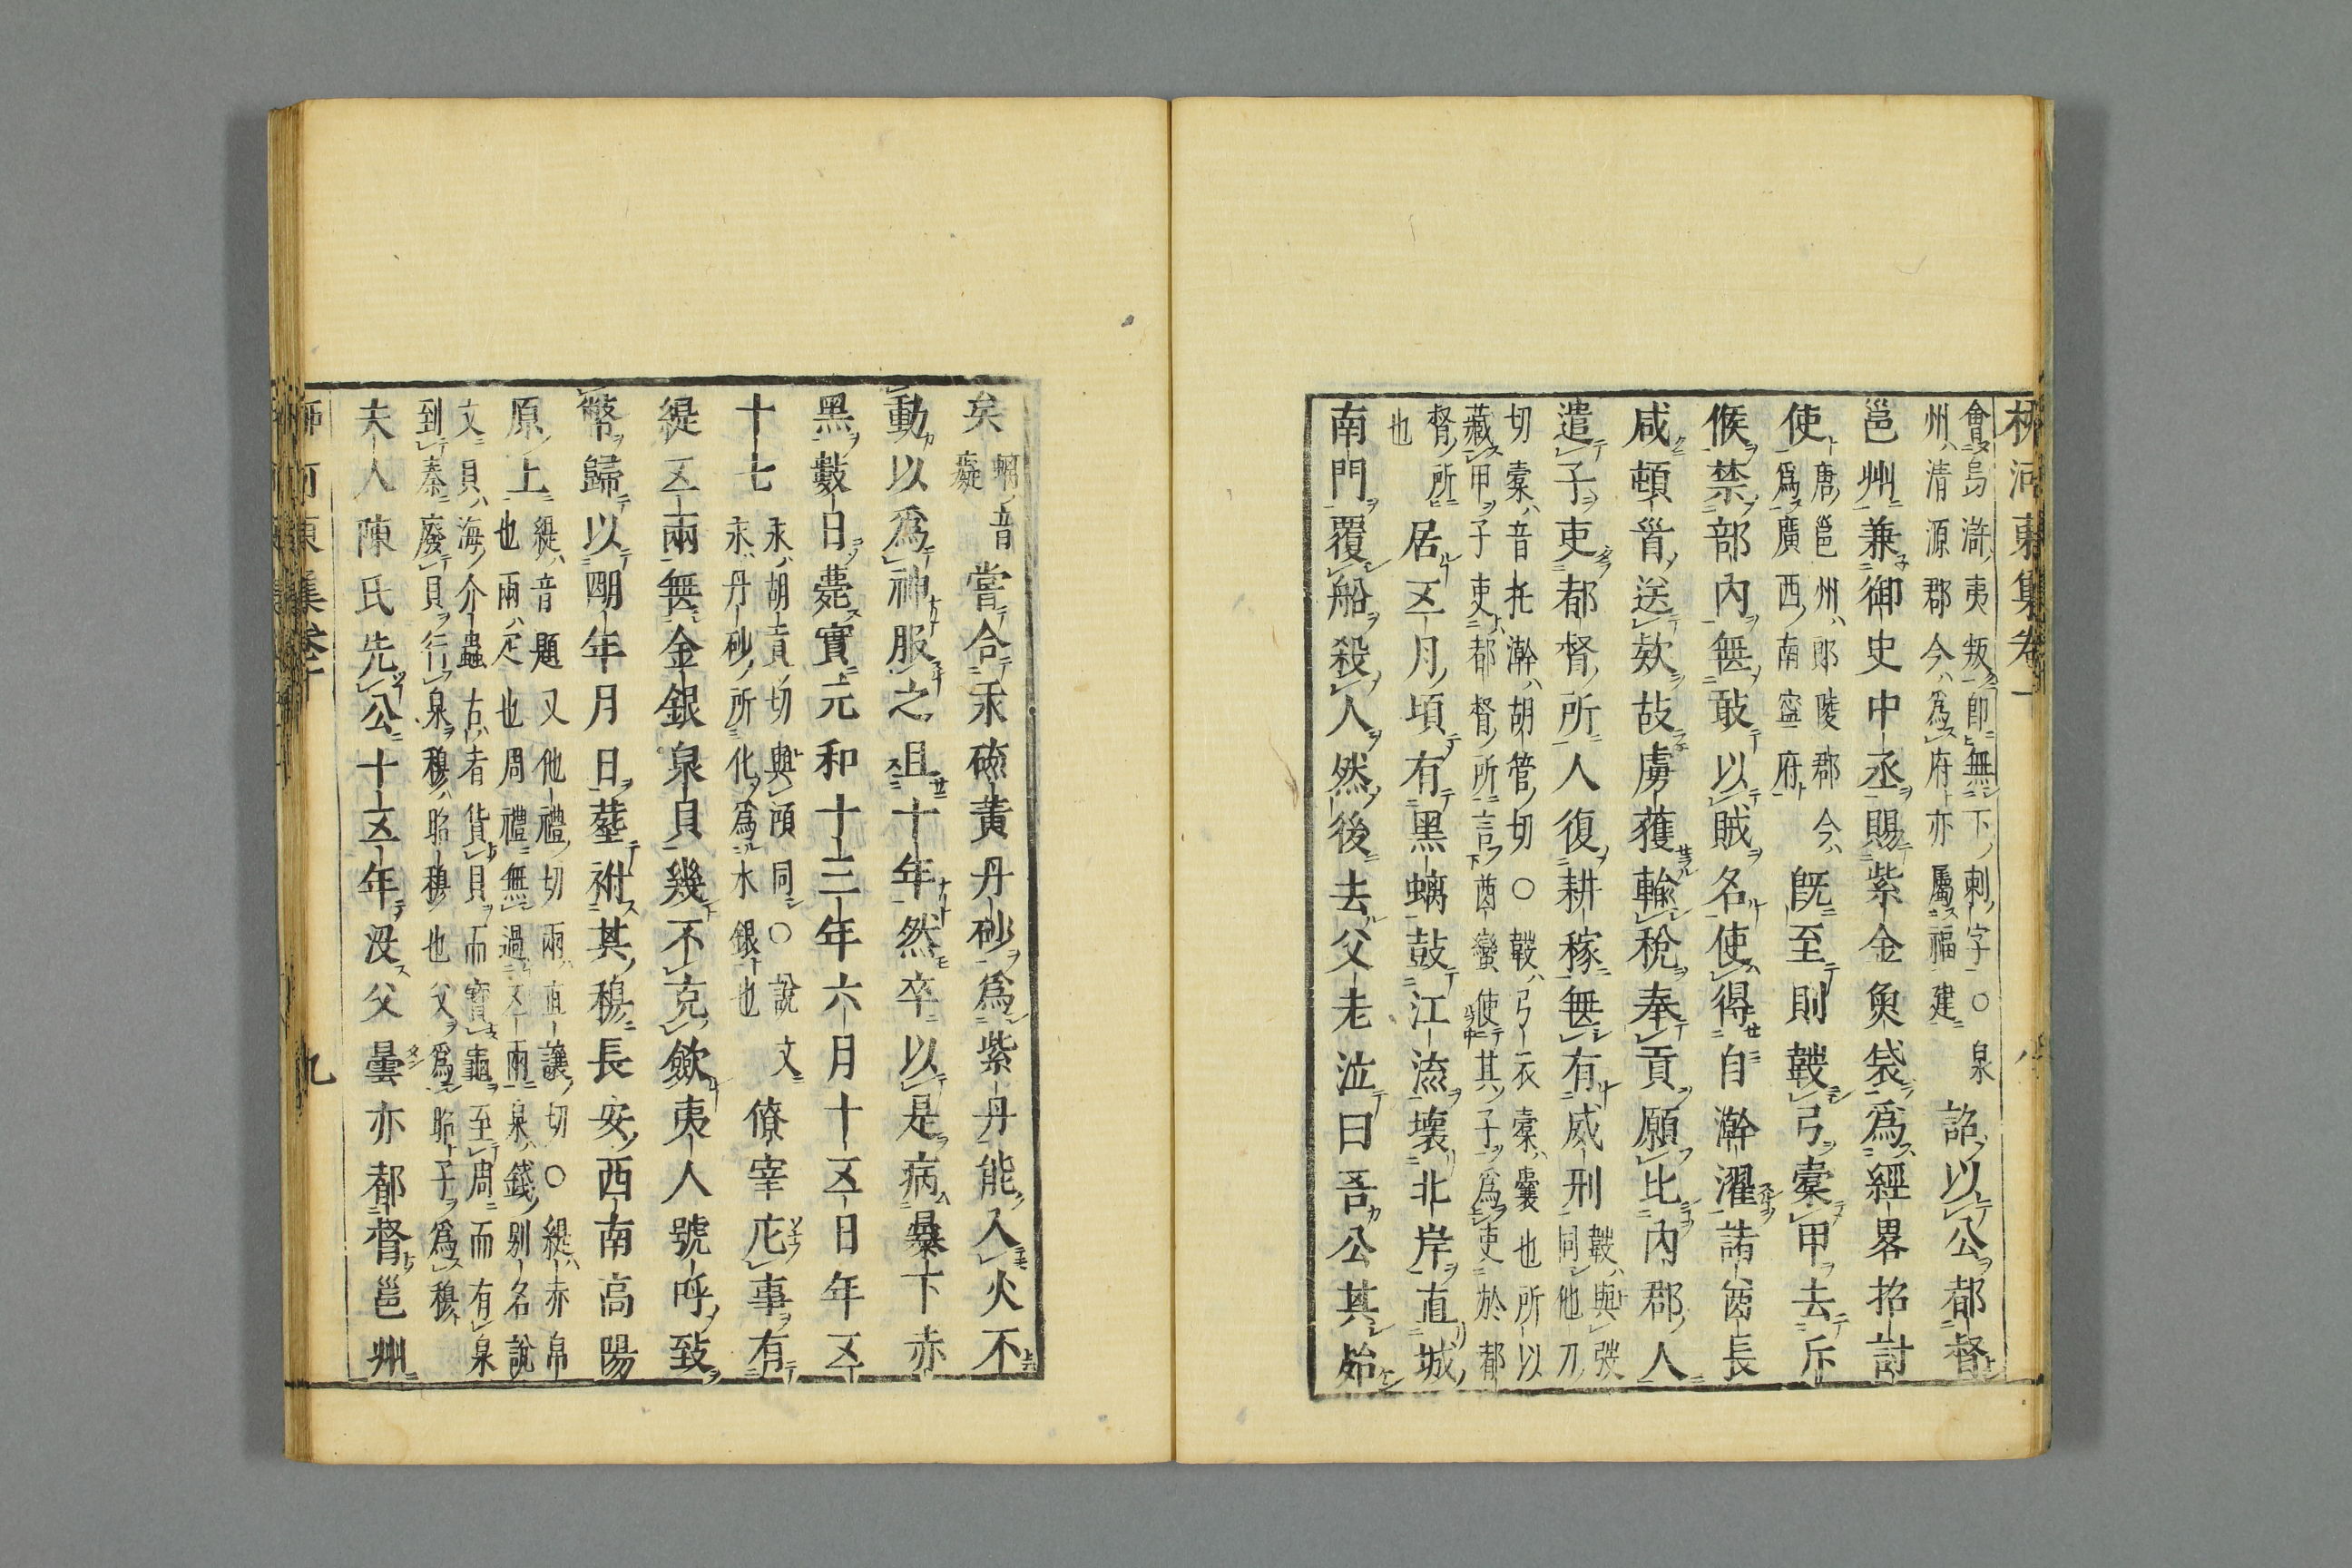 柳河東集卷十
會烏滸夷叛即無下刺字○泉
州清源郡今爲府亦屬福建
詔以公都督
邕州兼御史中丞賜紫金魚袋爲經畧招討
使
唐邕州郎陵郡今
爲廣西南寧府
旣至則韔弓櫜甲去斥
候禁部內無敢以賊名使得自瀚濯諸酋長
咸頓首送欵故虜獲輸稅奉貢願比內郡人
遣子吏都督所人復耕稼無有威刑
韔與弢同他刀
切櫜音托瀚胡管切○韔弓衣櫜囊也所以
藏甲子吏都督所言酋蠻使其子爲吏於都
督所
也
居五月頃有黑螭鼓江流壞北岸直城
南門覆船殺人然後去父老泣曰吾公其殆
矣
螭音
癡
嘗合汞硫黃丹砂爲紫丹能入火不
動以爲神服之且十年然卒以是病暴下赤
黑數日薨實元和十二年六月十五日年五
十七
汞胡貢切與澒同○說文
汞丹砂所化爲水銀也
僚宰庀事有
緹五兩無金銀泉貝幾不克斂夷人號呼致
幣歸以明年月日葬祔其穆長安西南高陽
原上
緹音題又他禮切兩直讓切○緹赤帛
也兩疋也周禮無過五兩泉錢別名說
文貝海介蟲古者貨貝而寶龜至周而有泉
到秦廢貝行泉穆昭穆也父爲昭子爲穆
夫人陳氏先公十五年没父曇亦都督邕州
柳河東集卷十
九